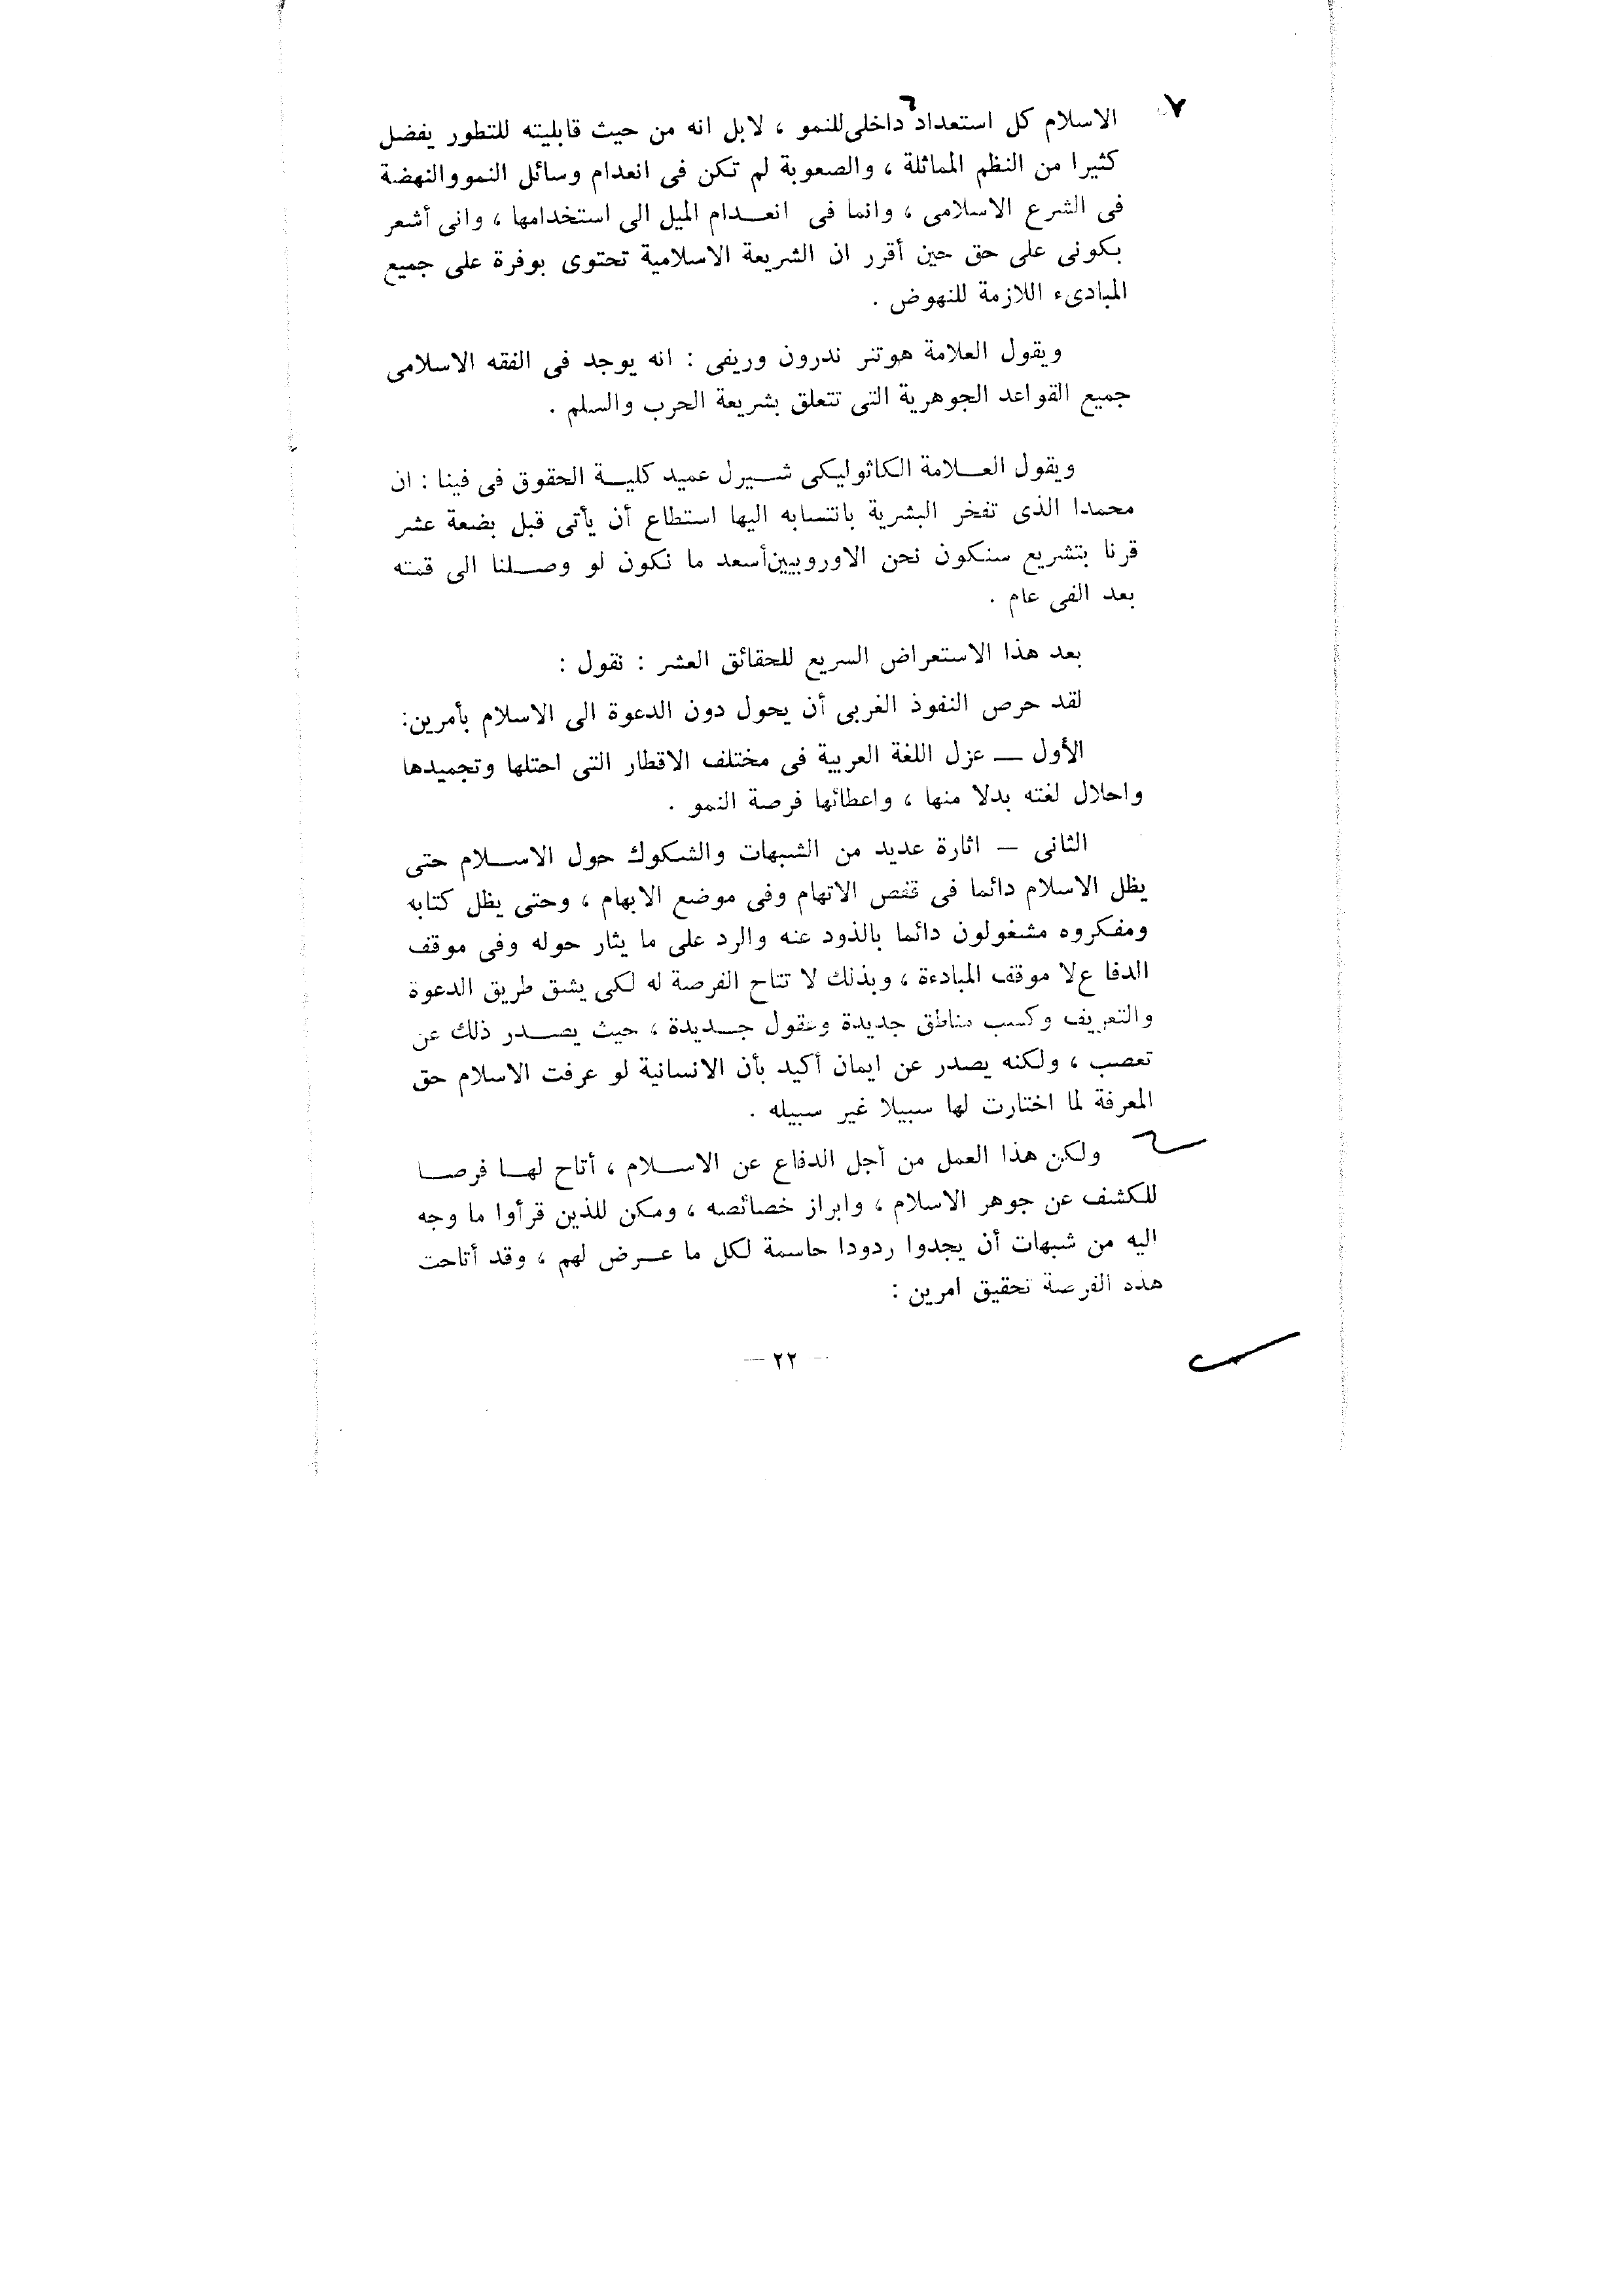 الاسلام كل استعداد داخلى للنمو ، لا بل انه من حيث قابليته للتطور يفضل
كثيرا من النظم المماثلة ، والصعوبة لم تكن فى انعدام وسائل النمو والنهضة
فى الشرع الاسلامى ، وانما فى انعدام الميل الى استخدامها ، وانى أشعر
بكونى على حق حين أقرر ان الشريعة الاسلامية تحتوى بوفرة على جميع
المبادىء اللازمة للنهوض .
ويقول العلامة هوتنر ندرون وريفى : انه يوجد فى الفقه الاسلامى
جميع القواعد الجوهرية التى تتعلق بشريعة الحرب والسلم .
ويقول العلامة الكاثوليكى شيرل عميد كلية الحقوق فى فينا : ان
محمدا الذى تفخر البشرية بانتسابه اليها استطاع أن يأتى قبل بضعة عشر
قرنا بتشريع سنكون نحن الاوروبيين أسعد ما نكون لو وصلنا الى قمته
بعد الفى عام .
بعد هذا الاستعراض السريع للحقائق العشر : نقول :
لقد حرص النفوذ الغربى أن يحول دون الدعوة الى الاسلام بأمرين:
الأول — عزل اللغة العربية فى مختلف الاقطار التى احتلها وتجميدها
واحلال لغته بدلا منها ، واعطائها فرصة النمو .
الثانى — اثارة عديد من الشبهات والشكوك حول الاسلام حتى
يظل الاسلام دائما فى قفص الاتهام وفى موضع الابهام ، وحتى يظل كتابه
ومفكروه مشغولون دائما بالذود عنه والرد على ما يثار حوله وفى موقف
الدفا ع لا موقف المبادءة ، وبذلك لا تتاح الفرصة له لكى يشق طريق الدعوة
والتعريف وكسب مناطق جديدة وعقول جديدة ، حيث يصدر ذلك عن
تعصب ، ولكنه يصدر عن ايمان أكيد بأن الانسانية لو عرفت الاسلام حق
المعرفة لما اختارت لها سبيلا غير سبيله .
ولكن هذا العمل من أجل الدفاع عن الاسلام ، أتاح لها فرصا
للكشف عن جوهر الاسلام ، وابراز خصائصه ، ومكن للذين قرأوا ما وجه
اليه من شبهات أن يجدوا ردودا حاسمة لكل ما عرض لهم ، وقد أتاحت
هذه الفرصة تحقيق امرين :
— ٢٢ —